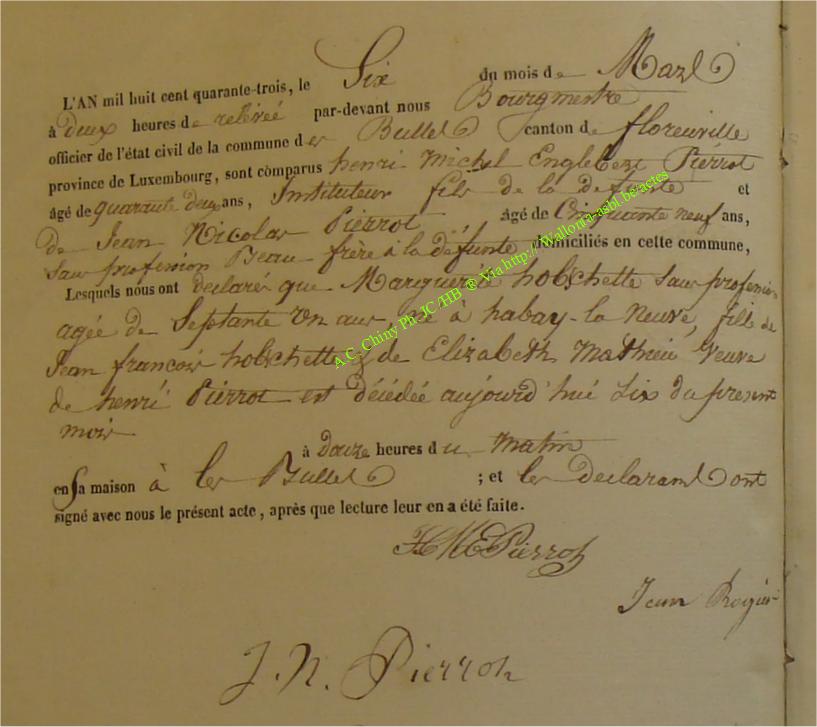 L'AN mil huit cent quarante-trois, le Six du mois de Mars
à deux heures de relévée par-devant nous Bourgmestre
officier de l'état civil de la commune des Bulles canton de florenville
province de Luxembourg, sont comparus henri Michel Englebert Pierrot
âgé de quarante deux ans, Instituteur fils de la defunte et
de Jean Nicolas Pierrot âgé de Cinquante neuf ans,
Sans profession Beau frère à la défunte domiciliés en cette commune,
Lesquels nous ont declarés que Marguerite hobschette Sans profession
agée de Septante Un ans, né à habay-la Neuve, fille de
Jean francois hobschette & de Elizabeth Mathieu Veuve
de henri Pierrot est décédée aujourd'hui Six du present
mois
à douze heures du Matin
en Sa maison à les Bulles ; et les declarans ont
signé avec nous le présent acte, après que lecture leur en a été faite.
HMEPierrot
Jean
J. N. Pierrot
A.C. Chiny Ph JC /HB ® Via http://Wallonia-asbl.be/actes